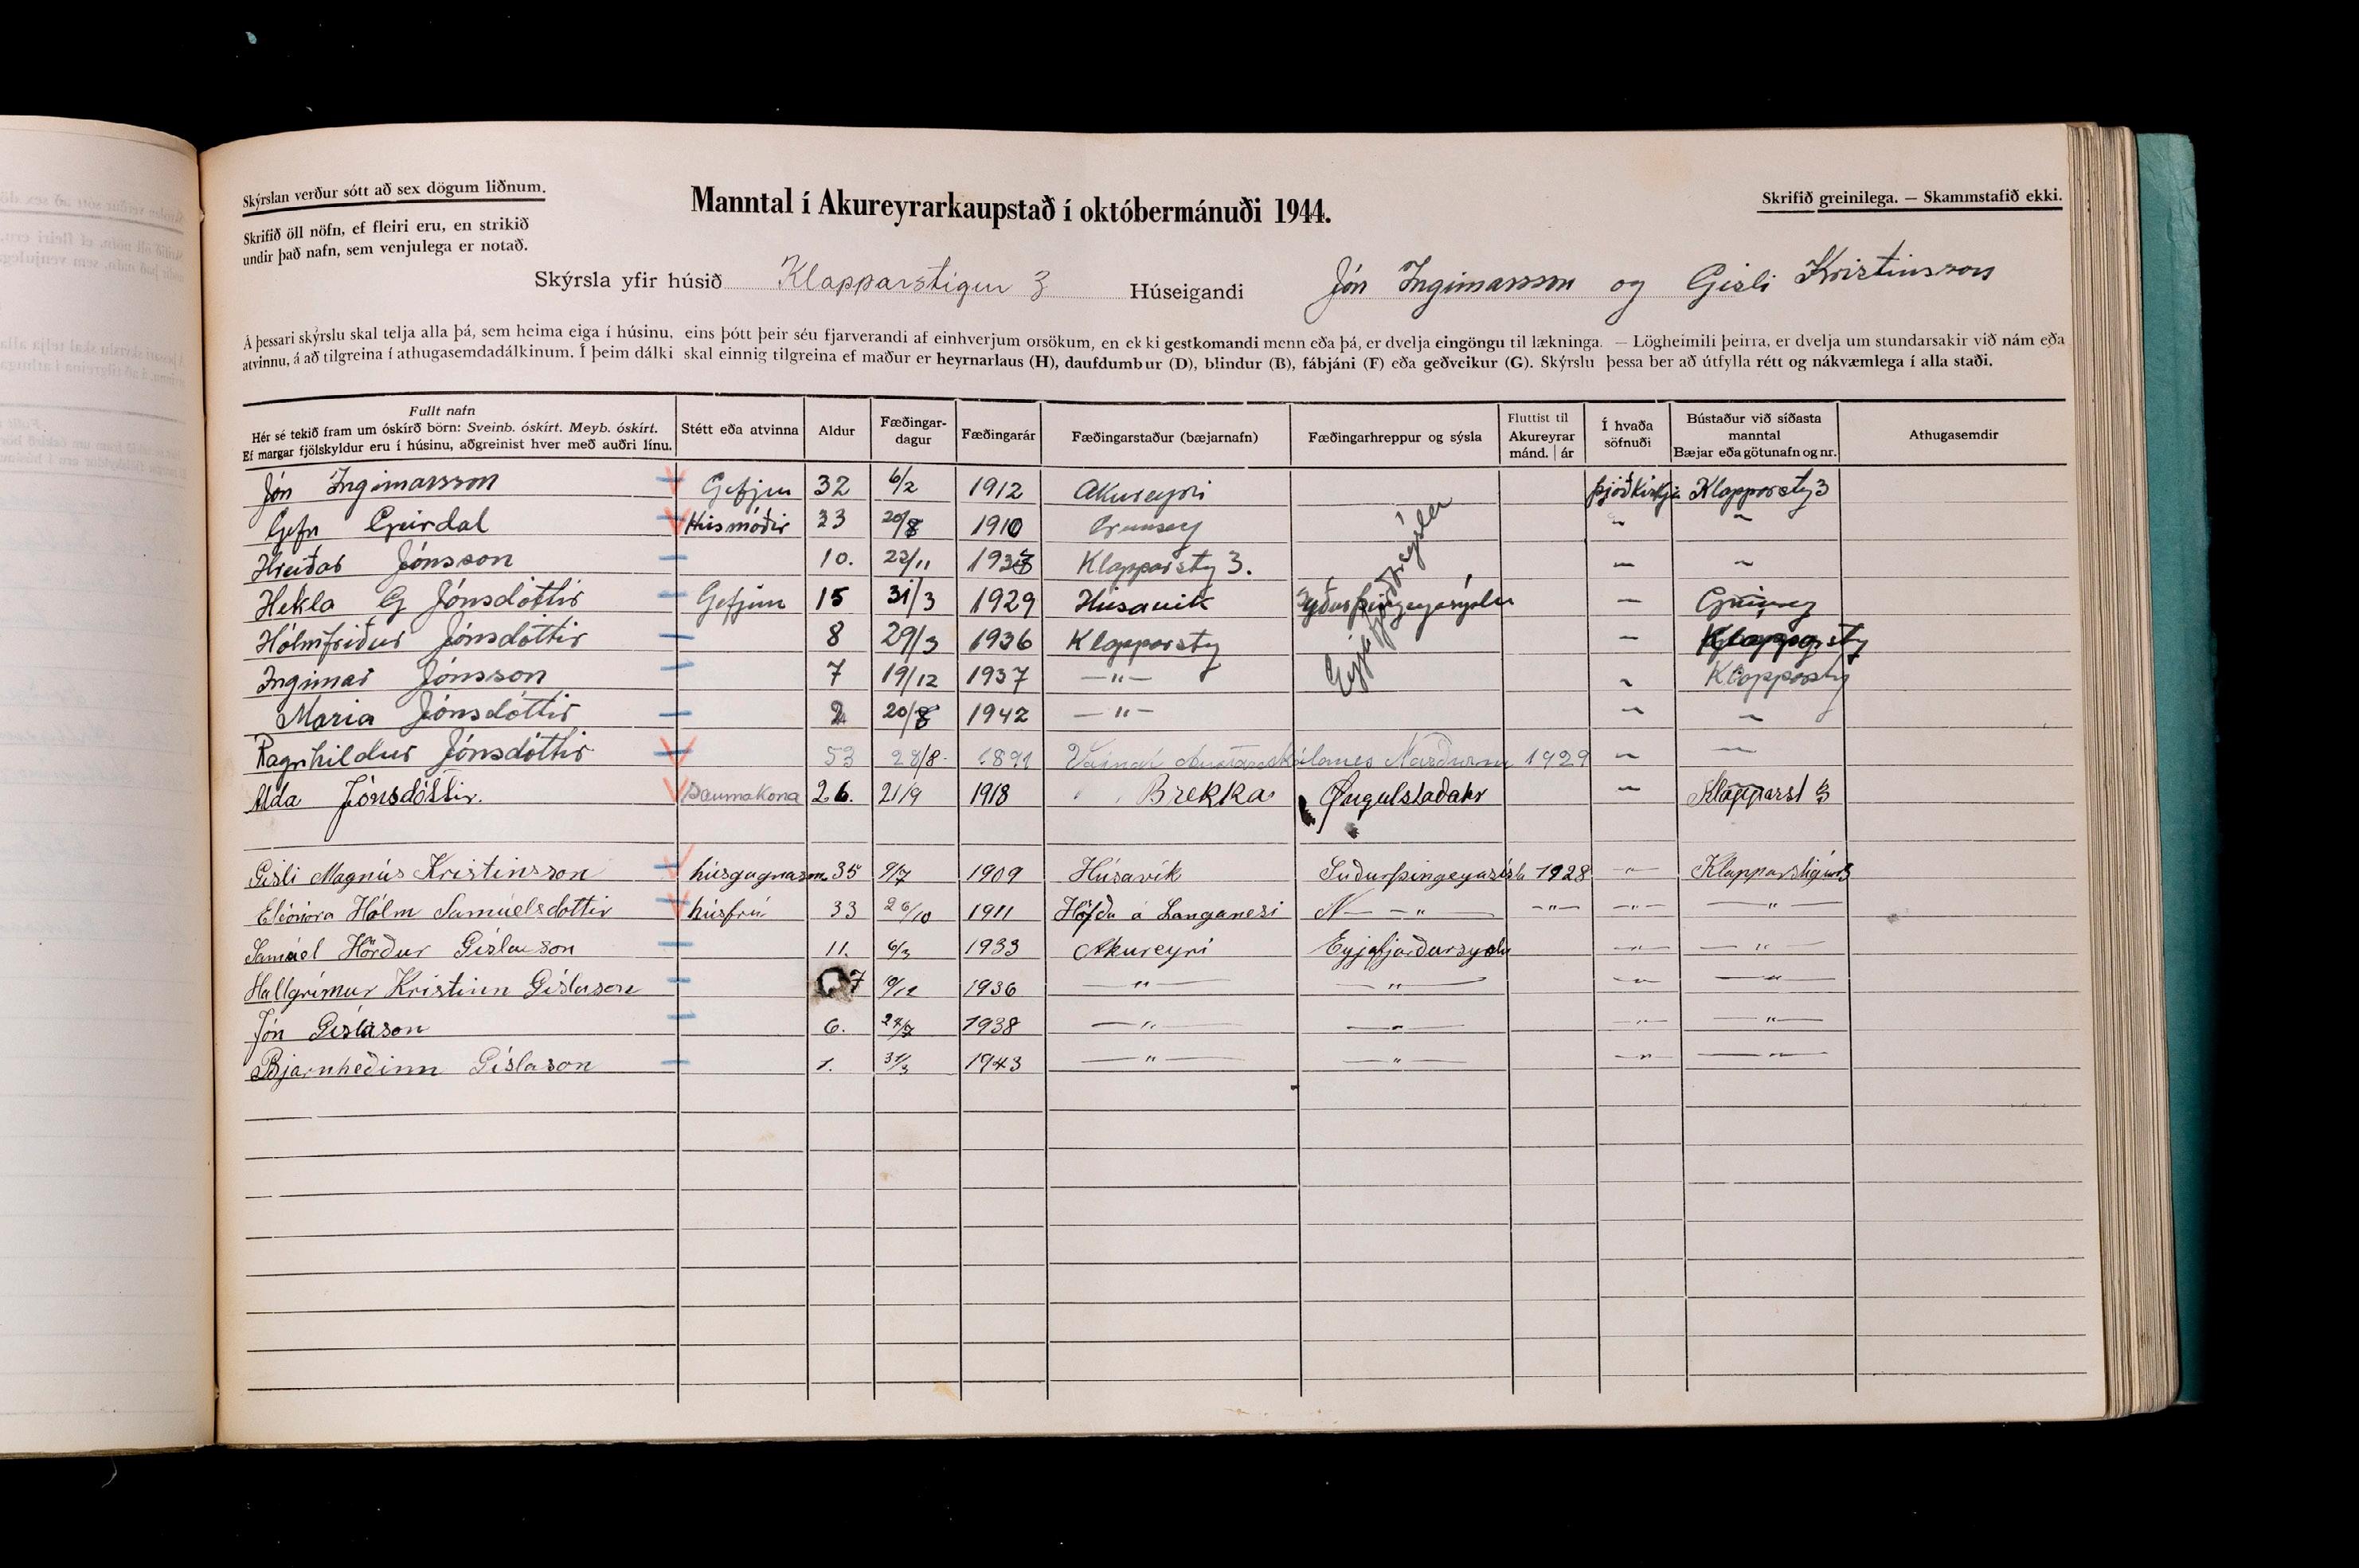 Skýrslan verður sótt að sex dögum liðnum.
Skrifið öll nöfn, ef fleiri eru, en strikið
undir það nafn, sem venjulega er notað.
Manntal í Akureyrarkaupstað í októbermánuði 1944.
Skrifið greinilega. — Skammstafið ekki.
Skýrsla yfir húsið Klapparstígur 3 Húseigandi Jón Ingimarsson og Gísli Kristinsson
Á þessari skýrslu skal telja alla þá, sem heima eiga í húsinu, eins þótt þeir séu fjarverandi af einhverjum orsökum, en ekki gestkomandi menn eða þá, er dvelja eingöngu til lækninga. — Lögheimili þeirra, er dvelja um stundarsakir við nám eða
atvinnu, á að tilgreina í athugasemdadálkinum. Í þeim dálki skal einnig tilgreina ef maður er heyrnarlaus (H), daufdumbur (D), blindur (B), fábjáni (F) eða geðveikur (G). Skýrslu þessa ber að útfylla rétt og nákvæmlega í alla staði.
Fullt nafn
Hér sé tekið fram um óskírð börn: Sveinb. óskírt. Meyb. óskírt.
Ef margar fjölskyldur eru í húsinu, aðgreinist hver með auðri línu.
Stétt eða atvinna
Aldur
Fæðingar-
dagur
Fæðingarár
Fæðingarstaður (bæjarnafn)
Fæðingarhreppur og sýsla
Fluttist til
Akureyrar
mánd. | ár
Í hvaða
söfnuði
Bústaður við síðasta
manntal
Bæjar eða götunafn og nr.
Athugasemdir
Jón Ingimarsson Gefjun 32 6/2 1912 Akureyri Þjóðkirkju Klapparstg 3
Gefn Geirdal Húsmóðir 33 20/8 1910 Grímsey ~ ~
Hreiðar Jónsson 10. 22/11 Klapparstg 3. ~ ~
Eyjafjarðarsýslu
Hekla G Jónsdóttir Gefjun 15 31/3 1929 Húsavík Suðurþingeyarsýslu ~ Grímsey
Hólmfríður Jónsdóttir 8 29/3 1936 Klapparstg ~ Klapparstg
Ingimar Jónsson 7 19/12 1937 —"— ~ Klapparstg
María Jónsdóttir 2 20/8 1942 —"— ~ ~
Ragnhildur Jónsdóttir 53 28/8 1891 1929 ~ ~
Alda Jónsdóttir. Saumakona 26. 21/9 1918 Brekka Öngulstaðahr ~ Klapparst 3
Gísli Magnús Kristinsson húsgagnasm. 35 9/7 1909 Húsavík Suðurþingeyasísla 1928 —"— Klapparstígur 3
Elíónóra Hólm Samúelsdóttir húsfrú 33 26/10 1911 Höfða á Langanesi N— —"— —"— —"— —"—
Samúel Hörður Gíslason 11. 6/3 1933 Akureyri Eyjafjarðarsysla —"— —"—
Hallgrímur Kristinn Gíslason 7 10/12 1936 —"— —"— —"— —"—
Jón Gíslason 6. 27/7 1938 —"— —"— —"— —"—
Bjarnheðinn Gíslason 1. 31/3 1943 —"— —"— —"— —"—